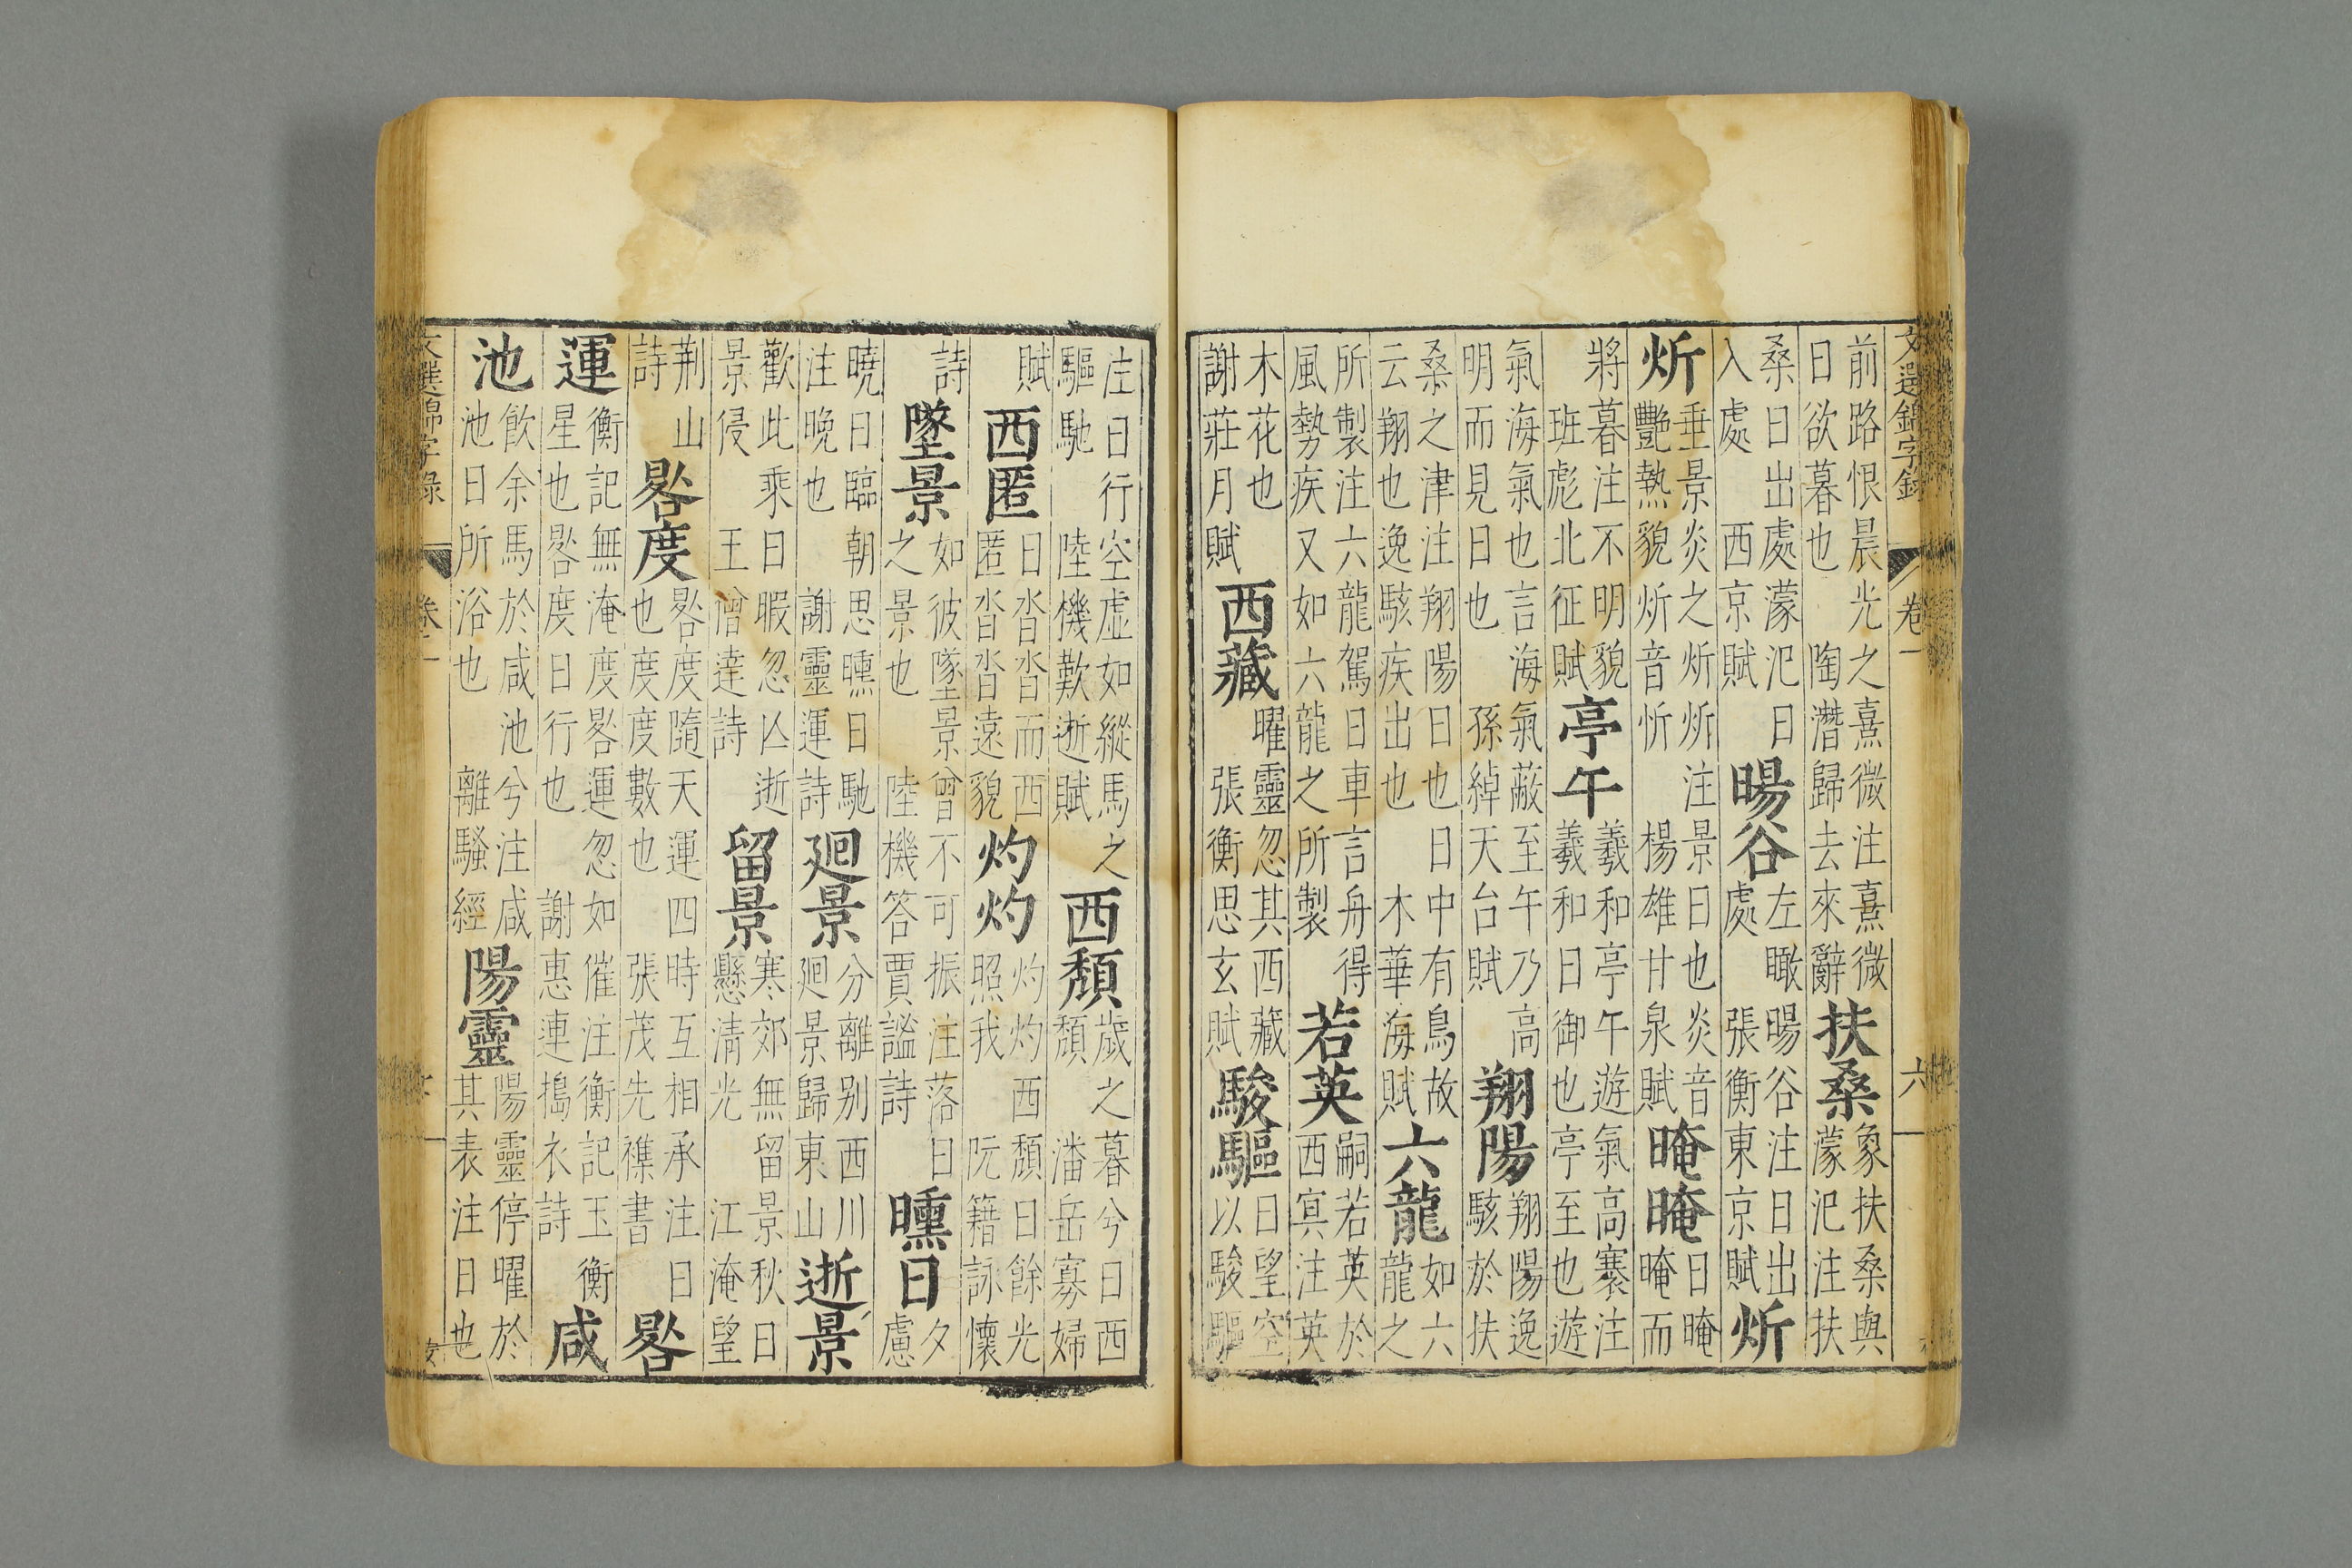 文選錦字錄 卷一 六
前路恨晨光之熹微注熹微
日欲暮也 陶潛歸去來辭
扶桑
象扶桑與
濛汜注扶
桑日出處濛汜日
入處 西京賦
暘谷
左瞰暘谷注日出
處 張衡東京賦
炘
炘
垂景炎之炘炘注景日也炎音
艷熱貌炘音忻 楊雄甘泉賦
晻晻
日晻
晻而
將暮注不明貌
班彪北征賦
亭午
羲和亭午遊氣高褰注
羲和日御也亭至也遊
氣海氣也言海氣蔽至午乃高
明而見日也 孫綽天台賦
翔陽
翔陽逸
駭於扶
桑之津注翔陽日也日中有鳥故
云翔也逸駭疾出也 木華海賦
六龍
如六
龍之
所製注六龍駕日車言舟得
風勢疾又如六龍之所製
若英
嗣若英於
西㝠注英
木花也
謝莊月賦
西藏
曜靈忽其西藏
張衡思玄賦
駿驅
日望空
以駿驅
注日行空虛如縱馬之
驅馳 陸機歎逝賦
西頹
歲之暮兮日西
頹 潘岳寡婦
賦
西匿
日沓沓而西
匿沓沓遠貌
灼灼
灼灼西頹日餘光
照我 阮籍詠懷
詩
墜景
如彼墜景曾不可振注落日
之景也 陸機答賈謐詩
曛日
夕
慮
曉日臨朝思曛日馳
注晚也 謝靈運詩
廻景
分離别西川
廻景歸東山
逝景
歡此乘日暇忽亾逝
景侵 王僧達詩
留景
寒郊無留景秋日
懸清光 江淹望
荆山
詩
晷度
晷度隨天運四時互相承注日
也度度數也 張茂先襍書
晷
運
衡記無淹度晷運忽如催注衡記玉衡
星也晷度日行也 謝惠連擣衣詩
咸
池
飲余馬於咸池兮注咸
池日所浴也 離騷經
陽靈
陽靈停曜於
其表注日也
文選錦字錄 卷一